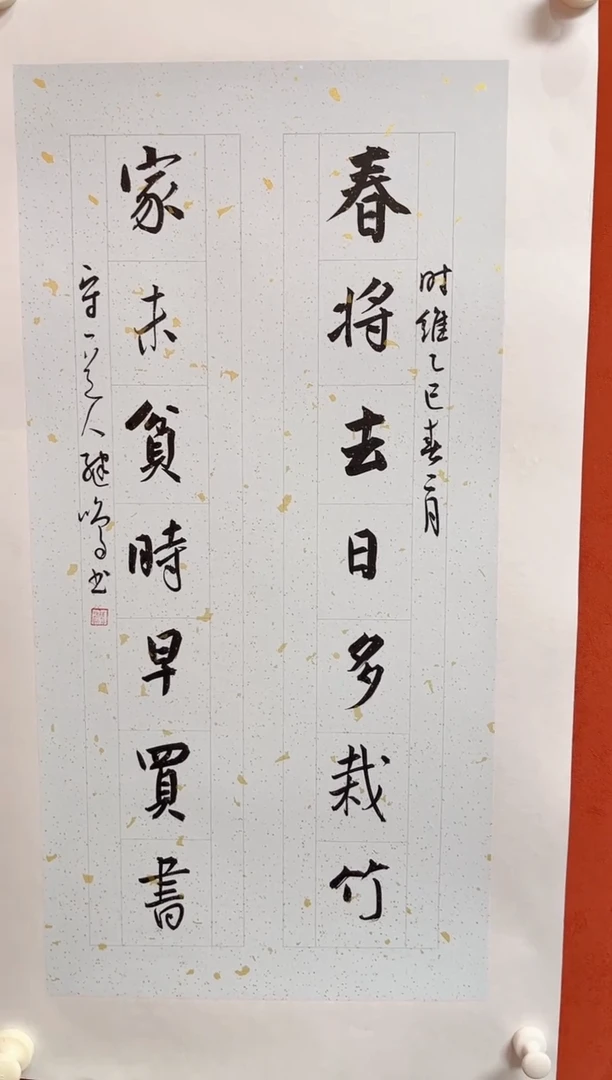 时维乙巳春二月
春将去日多栽竹
家未貧時早買書
守一道人继鸣书